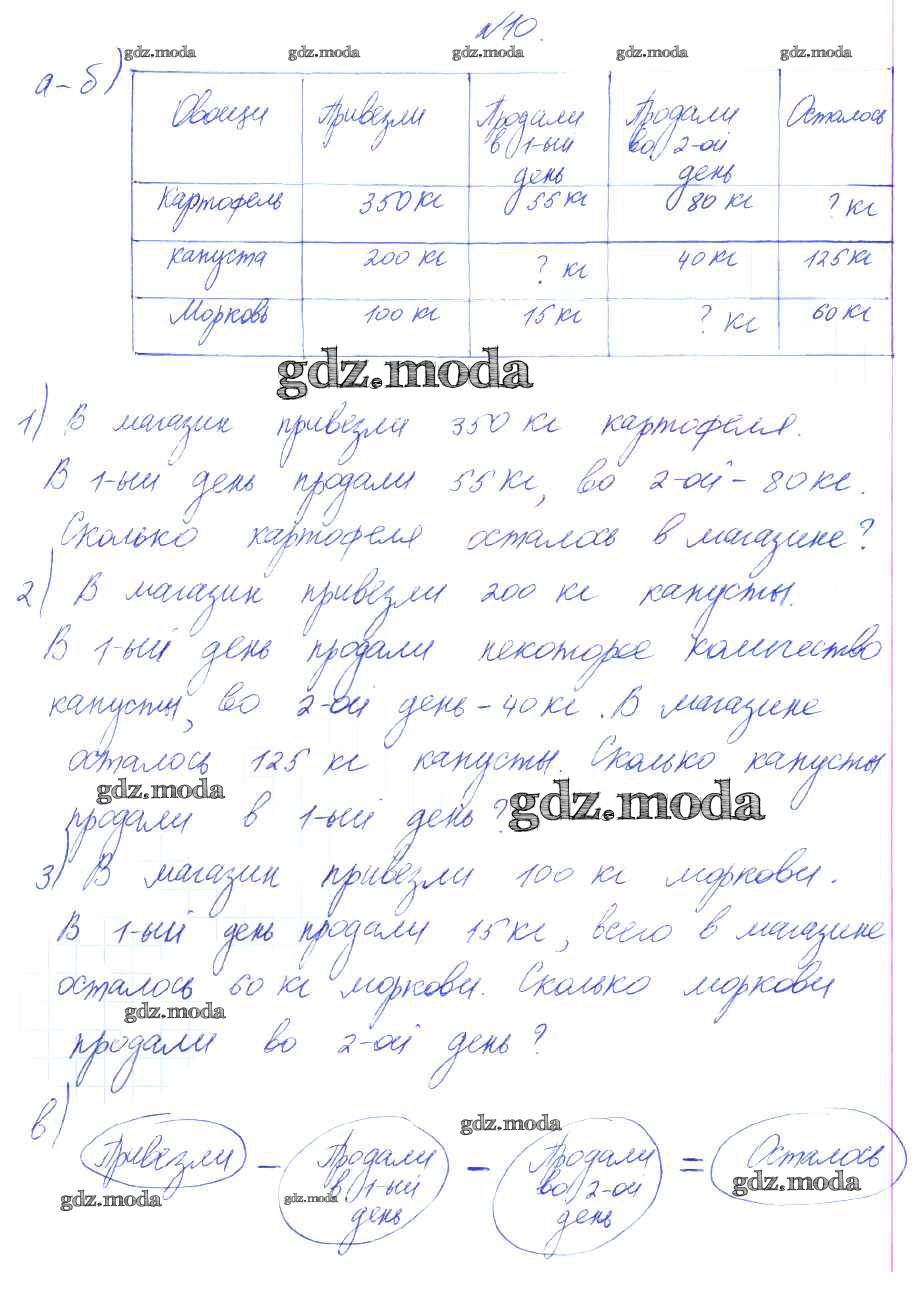 №10.
gdz.moda gdz.moda gdz.moda gdz.moda gdz.moda
а-б)
Овощи Привезли Продали в 1-ый день Продали во 2-ой день Осталось
Картофель 350 кг 55 кг 80 кг ? кг
капуста 200 кг ? кг 40 кг 125 кг
Морковь 100 кг 15 кг ? кг 60 кг
gdz.moda
1) В магазин привезли 350 кг картофеля.
В 1-ый день продали 55 кг, во 2-ой - 80 кг.
Сколько картофеля осталось в магазине?
2) В магазин привезли 200 кг капусты.
В 1-ый день продали некоторое количество
капусты, во 2-ой день - 40 кг. В магазине
осталось 125 кг капусты. Сколько капусты
gdz.moda gdz.moda
продали в 1-ый день?
3) В магазин привезли 100 кг моркови.
В 1-ый день продали 15 кг, всего в магазине
осталось 60 кг моркови. Сколько моркови
gdz.moda
продали во 2-ой день?
в)
gdz.moda
Привезли - Продали в 1-ый день - Продали во 2-ой день = Осталось
gdz.moda gdz.moda gdz.moda